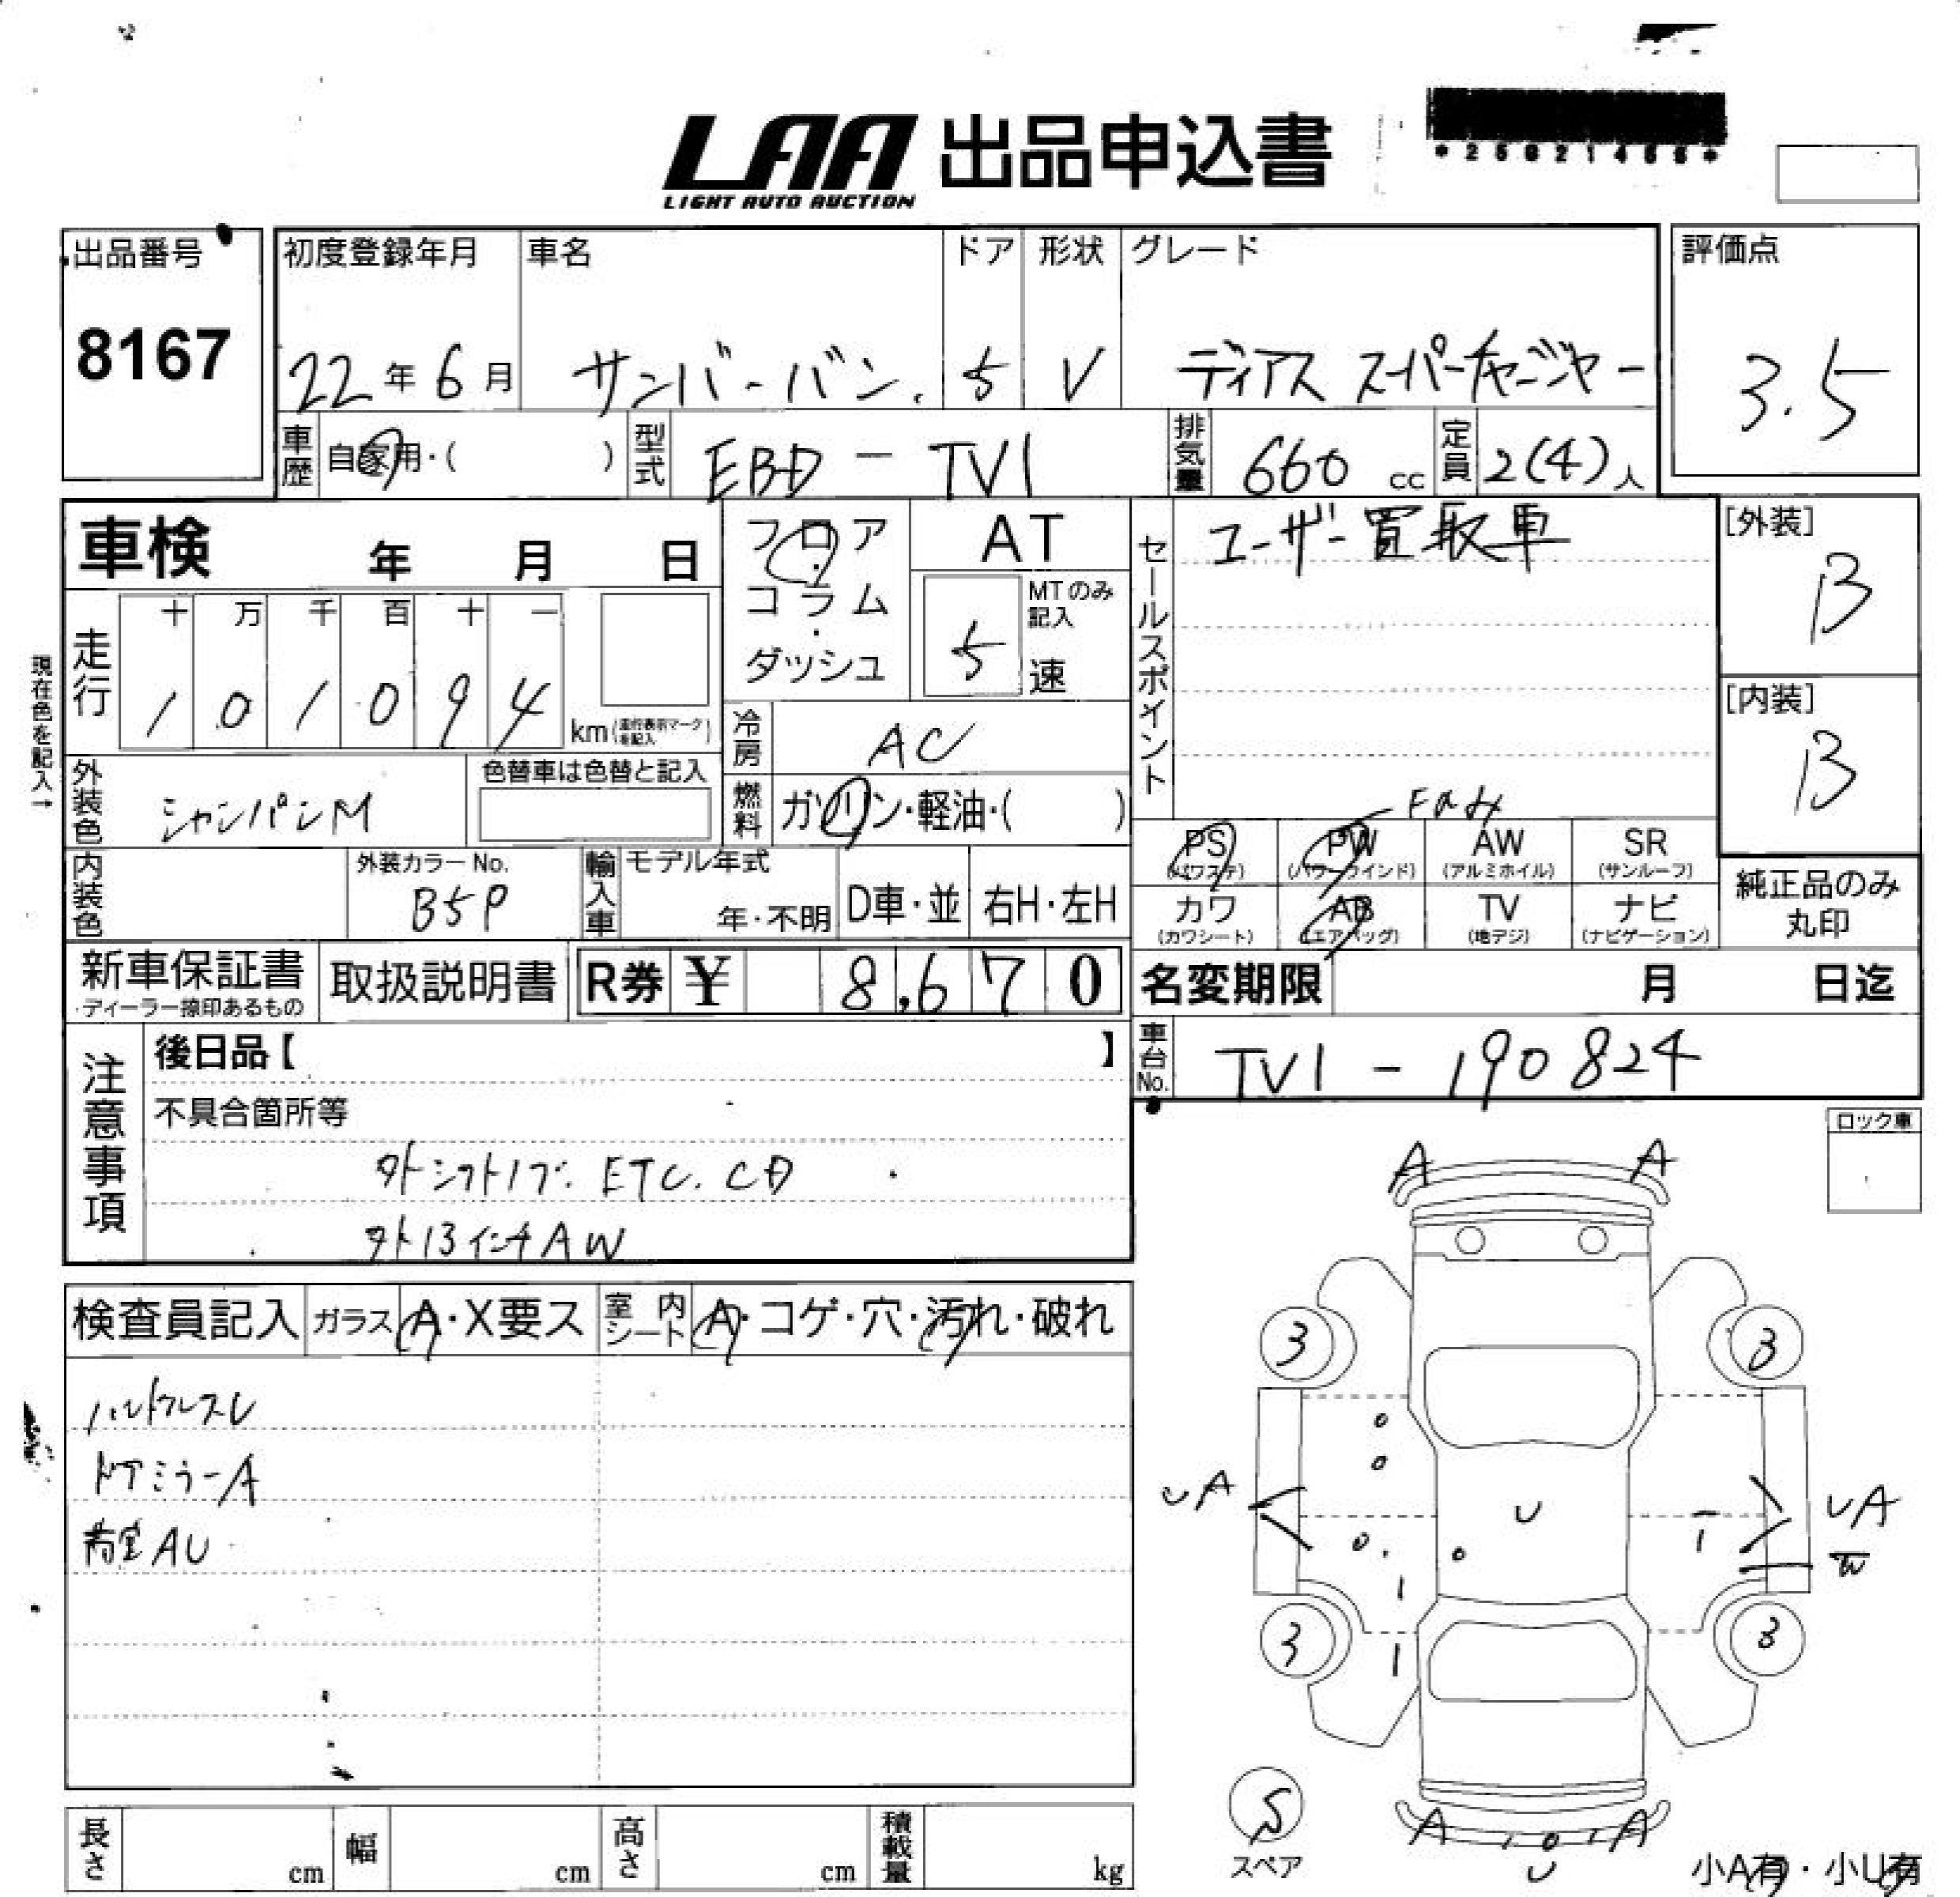 LAA 出品申込書
LIGHT AUTO AUCTION
出品番号
8167
初度登録年月
22年6月
車名
サンバーバン
ドア
5
形状
V
グレード
ディアス スーパーチャージャー
評価点
3.5
車歴
自家用・( )
型式
EBD-TV1
排気量
660 cc
定員
2(4)人
車検 年 月 日
フロア・コラム・ダッシュ
AT
MTのみ記入
5速
セールスポイント
ユーザー買取車
[外装]
B
[内装]
B
現在色を記入→
走行
十 万 千 百 十 一
1 0 1 0 9 4
km(走行表示マークを記入)
冷房
AC
燃料
ガソリン・軽油・( )
外装色
シャンパンM
色替車は色替と記入
内装色
外装カラーNo.
B5P
輸入車
モデル年式
年・不明
D車・並
右H・左H
Fのみ
PS
(パワステ)
PW
(パワーウインド)
AW
(アルミホイル)
SR
(サンルーフ)
カワ
(カワシート)
AB
(エアバッグ)
TV
(地デジ)
ナビ
(ナビゲーション)
純正品のみ丸印
新車保証書
・ディーラー捺印あるもの
取扱説明書
R券 ¥ 8,670
名変期限 月 日迄
車台No.
TV1-190824
注意事項
後日品【 】
不具合箇所等
外シフトノブ. ETC. CD
外13インチAW
ロック車
検査員記入
ガラス A・X要ス
室内シート A・コゲ・穴・汚れ・破れ
ハンドルスレ
ドアミラーA
荷室AU
A A
3 3
UA
U
UA
W
3 3
S
スペア
A A
U
小A有・小U有
長さ cm
幅 cm
高さ cm
積載量 kg